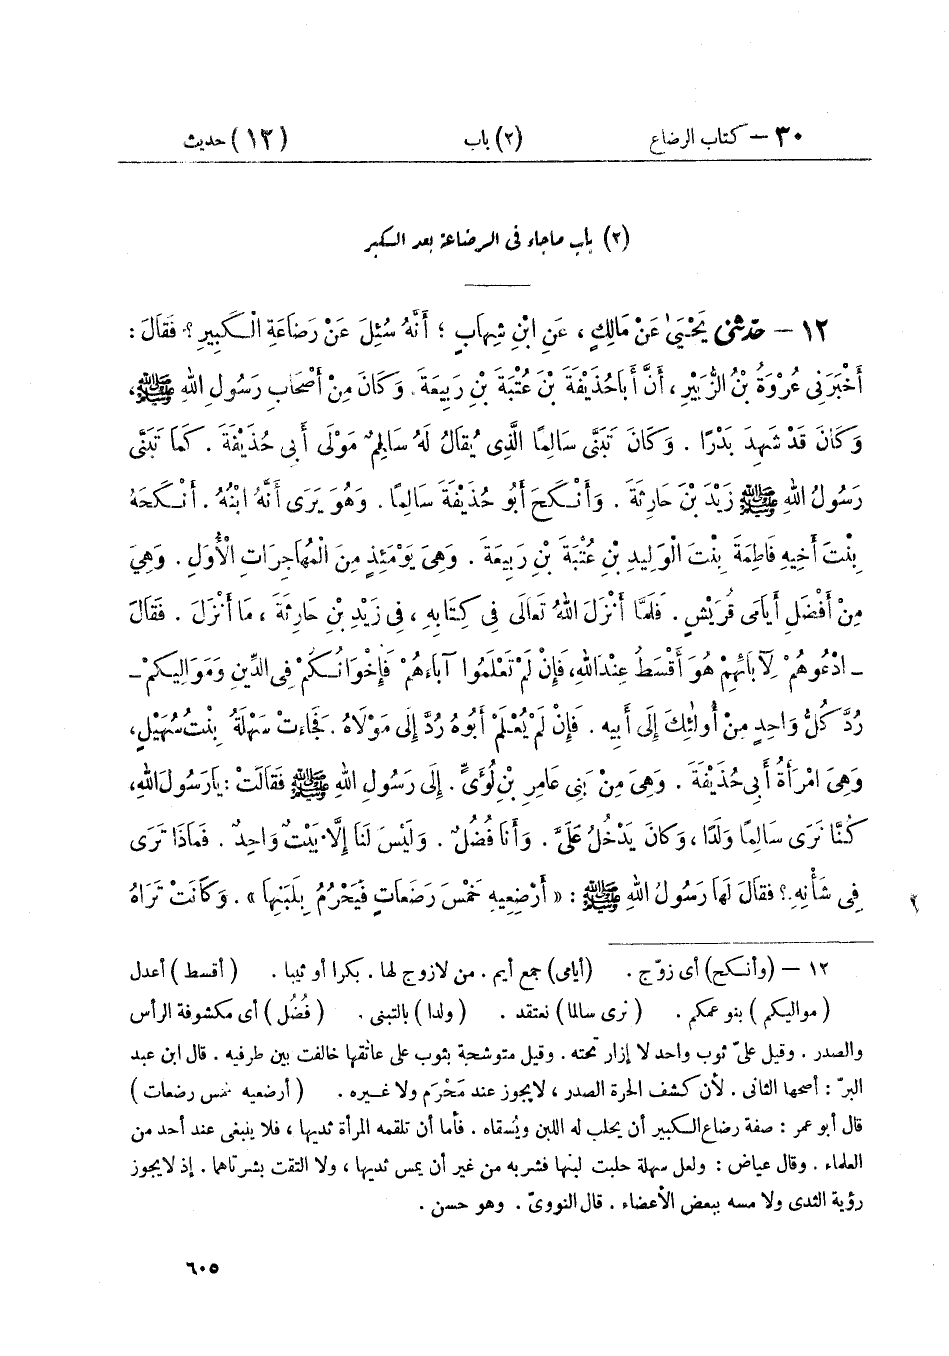 ٣٠ – كتاب الرضاع (٢) باب (١٢) حديث
(٢) باب ماجاء فى الرضاعة بعد الكبر
١٢ – حَدَّثَنِى يَحْيَىٰ عَنْ مَالِكٍ ، عَنِ ابْنِ شِهَابٍ ؛ أَنَّهُ سُئِلَ عَنْ رَضَاعَةِ الْكَبِيرِ ؟ فَقَالَ :
أَخْبَرَنِى عُرْوَةُ بْنُ الزُّبَيْرِ ، أَنَّ أَبَا حُذَيْفَةَ بْنَ عُتْبَةَ بْنِ رَبِيعَةَ . وَكَانَ مِنْ أَصْحَابِ رَسُولِ اللهِ ﷺ ،
وَكَانَ قَدْ شَهِدَ بَدْرًا . وَكَانَ تَبَنَّى سَالِمًا الَّذِى يُقَالُ لَهُ سَالِمٌ مَوْلَى أَبِى حُذَيْفَةَ . كَمَا تَبَنَّى
رَسُولُ اللهِ ﷺ زَيْدَ بْنَ حَارِثَةَ . وَأَنْكَحَ أَبُو حُذَيْفَةَ سَالِمًا . وَهُوَ يَرَى أَنَّهُ ابْنُهُ . أَنْكَحَهُ
بِنْتَ أَخِيهِ فَاطِمَةَ بِنْتَ الْوَلِيدِ بْنِ عُتْبَةَ بْنِ رَبِيعَةَ . وَهِىَ يَوْمَئِذٍ مِنَ الْمُهَاجِرَاتِ الْأُوَلِ . وَهِىَ
مِنْ أَفْضَلِ أَيَامَى قُرَيْشٍ . فَلَمَّا أَنْزَلَ اللهُ تَعَالَى فِى كِتَابِهِ ، فِى زَيْدِ بْنِ حَارِثَةَ ، مَا أَنْزَلَ . فَقَالَ
– ادْعُوهُمْ لِآبَائِهِمْ هُوَ أَقْسَطُ عِنْدَ اللهِ ، فَإِنْ لَمْ تَعْلَمُوا آبَاءَهُمْ فَإِخْوَانُكُمْ فِى الدِّينِ وَمَوَالِيكُمْ –
رُدَّ كُلُّ وَاحِدٍ مِنْ أُولَئِكَ إِلَى أَبِيهِ . فَإِنْ لَمْ يُعْلَمْ أَبُوهُ رُدَّ إِلَى مَوْلَاهُ . فَجَاءَتْ سَهْلَةُ بِنْتُ سُهَيْلٍ ،
وَهِىَ امْرَأَةُ أَبِى حُذَيْفَةَ . وَهِىَ مِنْ بَنِى عَامِرِ بْنِ لُؤَىٍّ . إِلَى رَسُولِ اللهِ ﷺ فَقَالَتْ : يَا رَسُولَ اللهِ ،
كُنَّا نَرَى سَالِمًا وَلَدًا ، وَكَانَ يَدْخُلُ عَلَىَّ . وَأَنَا فُضُلٌ . وَلَيْسَ لَنَا إِلَّا بَيْتٌ وَاحِدٌ . فَمَاذَا تَرَى
فِى شَأْنِهِ ؟ فَقَالَ لَهَا رَسُولُ اللهِ ﷺ : « أَرْضِعِيهِ خَمْسَ رَضَعَاتٍ فَيَحْرُمُ بِلَبَنِهَا » . وَكَانَتْ تَرَاهُ
١٢ – (وأنكح) أى زوّج . (أيامى) جمع أيم . من لازوج لها . بكرا أو ثيبا . (أقسط) أعدل
(مواليكم) بنو عمكم . (نرى سالما) نعتقد . (ولدا) بالتبنى . (فُضُل) أى مكشوفة الرأس
والصدر . وقيل علىّ ثوب واحد لا إزار تحته . وقيل متوشحة بثوب على عاتقها خالفت بين طرفيه . قال ابن عبد
البرّ : أصحها الثانى . لأن كشف الحرة الصدر ، لايجوز عند مَحْرَم ولا غيره . (أرضعيه خمس رضعات)
قال أبو عمر : صفة رضاع الكبير أن يحلب له اللبن ويُسقاه . فأما أن تلقمه المرأة ثديها ، فلا ينبغى عند أحد من
العلماء . وقال عياض : ولعل سهلة حلبت لبنها فشربه من غير أن يمس ثديها ، ولا التقت بشرتاهما . إذ لايجوز
رؤية الثدى ولا مسه ببعض الأعضاء . قال النووىّ . وهو حسن .
٦٠٥